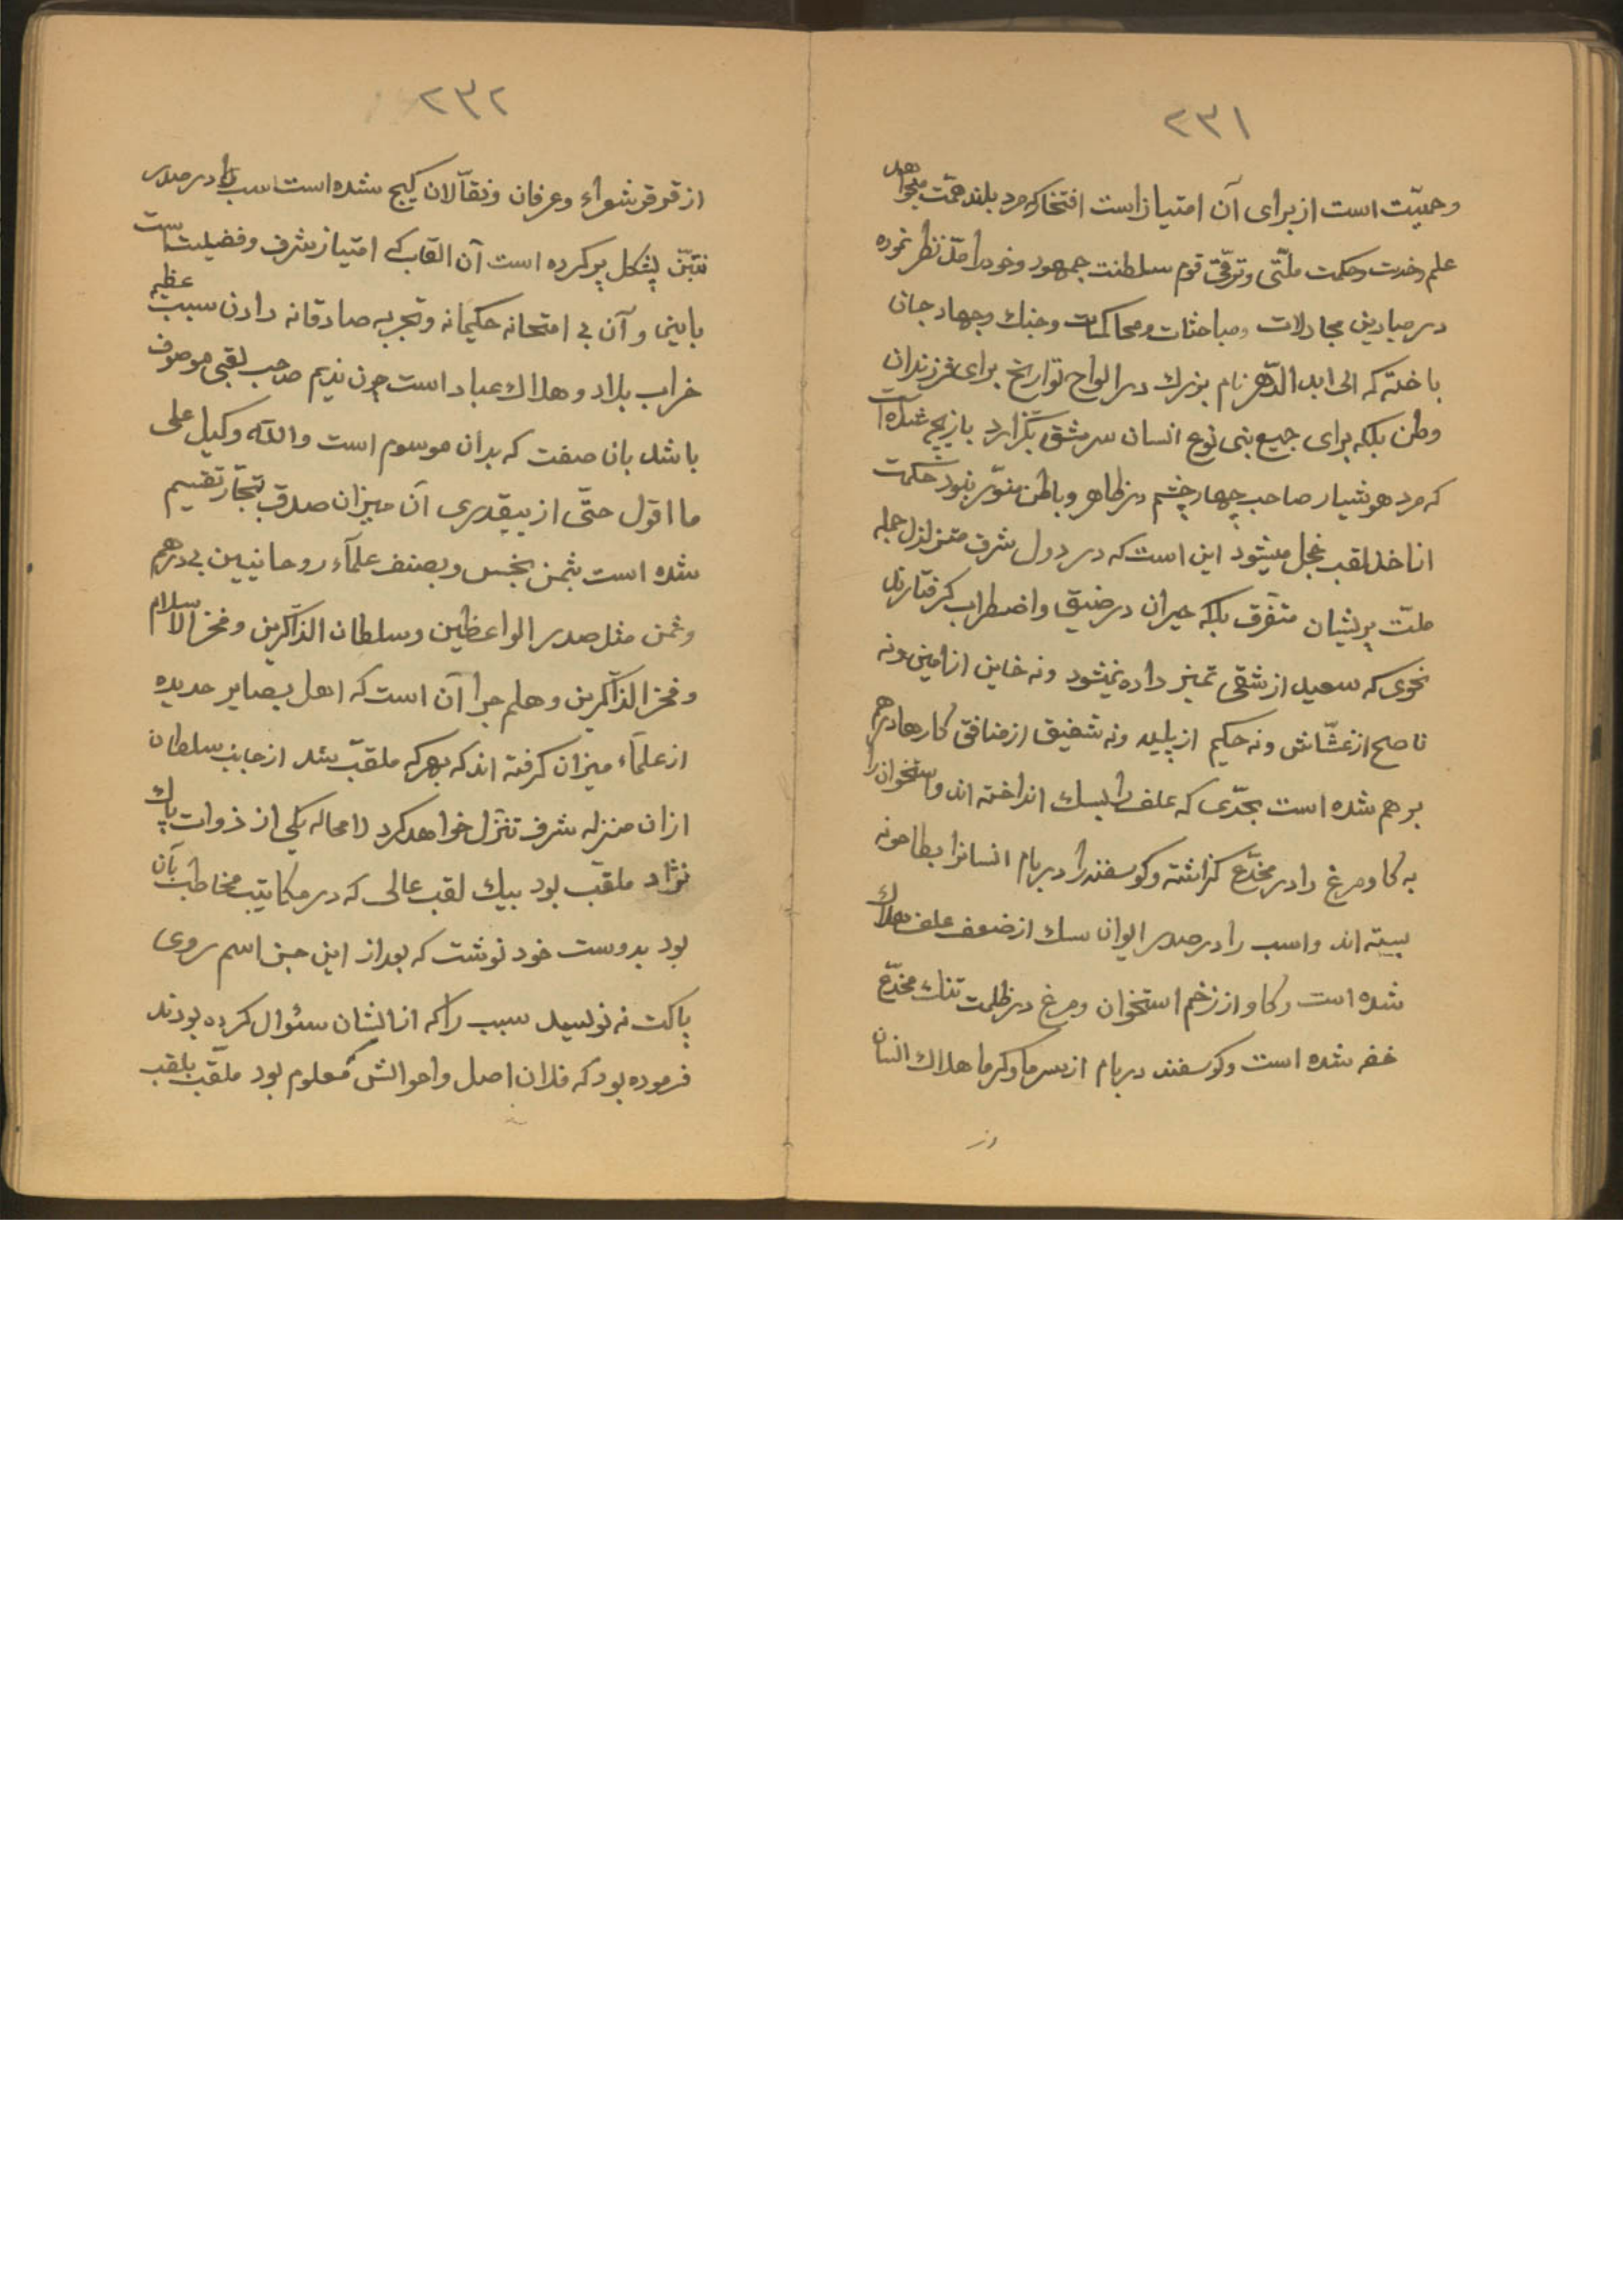 ٢٣١
وحمیّت است از برای آن امتیاز است افتخار که مرد بلند همّت بخواهد
علم وخدمت وحکمت ملّتی وترقّی قوم سلطنت جمهور وخود را مدّ نظر نموده
در میادین مجادلات ومباحثات ومحاکمات وجنك وجهاد جان
باخته که الی ابد الدّهر نام بزرك در الواح تواریخ برای فرزندان
وطن بلکه برای جمیع بنی نوع انسان سرمشق بگزارد بازیچ شده است
که مرد هوشیار صاحب چهار چشم در ظاهر وباطن منوّر بنور حکمت
انا خذ لقب خجل میشود این است که در دول شرق متزلزل جمله
ملّت پریشان متفرّق بلکه حیران در ضیق واضطراب گرفتارند
نحوی که سعید از شقی تمیز داده نمیشود ونه خاین از امین ونه
ناصح از غشّاش ونه حکیم از پلید ونه شفیق از منافق کارها درهم
برهم شده است بحدّی که علف را بسك انداخته اند واستخوان را
به کاو ومرغ را در مخدّع گزاشته وکوسفند را در بام انسانرا بطاحونه
بسته اند واسب را در صدر ایوان سك از ضعف علف هلاك
شده است وکاو از زخم استخوان ومرغ در ظلمت تنك مخدّع
خفه شده است وکوسفند در بام از سرما وکرما هلاك انسان
از
٢٣٢
از قرقر شعراء وعرفان ونقّالان گیج شده است اسب را در صدر
بتبّن پشکل پر کرده است آن القاب که امتیاز شرف وفضیلت است
باینی وآن بی امتحانه حکیمانه وتجربه صادقانه دادن سبب عظیم
خراب بلاد وهلاك عباد است چون ندیم صاحب لقبی موصوف
باشد بان صفت که بدان موسوم است والله وکیل علی
ما اقول حتّی از بیقدری آن میزان صدق بتجّار تقسیم
شده است بثمن بخس وبصنف علمآء روحانیین بی درهم
وثمن مثل صدر الواعظین وسلطان الذّاکرین وفخر الاسلام
وفخر الذّاکرین وهلم جرا آن است که اهل بصایر حدیده
از علمآء میزان کرفته اند که بهرکه ملقّب شد از جانب سلطان
ازان منزله شرف تنزّل خواهد کرد لا محاله یکی از ذوات پاك
نژاد ملقب بود بیك لقب عالی که در مکاتیب مخاطب بآن
بود بدوست خود نوشت که بعد از این جز اسم روی
پاکت نه نویسید سبب را که از ایشان سئوال کرده بودند
فرموده بود که فلان اصل واحوالش معلوم بود ملقّب بلقب